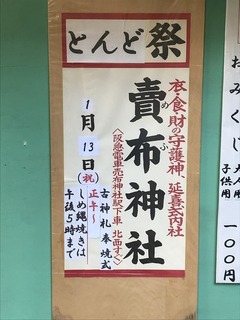 とんど祭
衣・食・財の守護神、延喜式内社
賣布神社
めふ
〈阪急電車売布神社駅下車 北西すぐ〉
1月13日(祝)
古神札奉焼式
正午〜
しめ縄焼きは
午後5時まで
おみくじ
大人用
子供用
一〇〇円